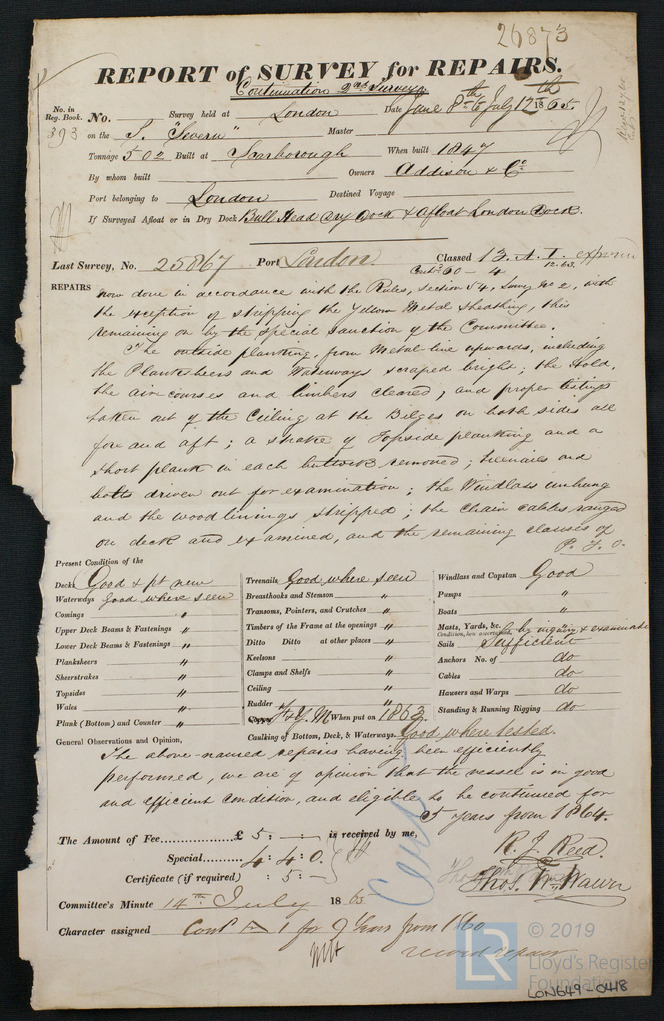 26873
REPORT of SURVEY for REPAIRS.
Continuation 2nd Survey
No. in Reg. Book. No. Survey held at London Date June 8th to July 12th 1865
393 on the S. "Severn" Master
Tonnage 502 Built at Scarborough When built 1847
By whom built Owners Addison & Co
Port belonging to London Destined Voyage
If Surveyed Afloat or in Dry Dock Bull Head dry dock & afloat London Dock.
Last Survey, No. 25867 Port London Classed 13. A. I. expired
Contd 60 - 4 12.63.
REPAIRS now done in accordance with the Rules, Section 54, Survey No 2, with
the exception of stripping the Yellow Metal Sheathing, this
remaining on by the special Sanction of the Committee.
The outside planking, from Metal-line upwards, including
the Planksheers and Waterways scraped bright; the Hold,
the air courses and limbers cleared; and proper listings
taken out of the Ceiling at the Bilges on both sides all
fore and aft; a strake of Topside planking and a
short plank in each buttock removed; treenails and
bolts driven out for examination; the Windlass unhung
and the wood linings stripped; the chain cables ranged
on deck and examined, and the remaining clauses of
P. T. O.
Present Condition of the
Decks Good & pt new
Waterways good where seen
Comings "
Upper Deck Beams & Fastenings "
Lower Deck Beams & Fastenings "
Planksheers "
Sheerstrakes "
Topsides "
Wales "
Plank (Bottom) and Counter "
Treenails Good where seen
Breasthooks and Stemson "
Transoms, Pointers, and Crutches "
Timbers of the Frame at the openings "
Ditto Ditto at other places "
Keelsons "
Clamps and Shelfs "
Ceiling "
Rudder "
Copper F & Y. M When put on 1863
Caulking of Bottom, Deck, & Waterways. Good where tested.
Windlass and Capstan Good
Pumps "
Boats "
Masts, Yards, &c. by inquiry & examination
Condition, how ascertained
Sails Sufficient
Anchors No. of do
Cables do
Hawsers and Warps do
Standing & Running Rigging do
General Observations and Opinion,
The above-named repairs having been efficiently
performed, we are of opinion that the vessel is in good
and efficient condition, and eligible to be continued for
5 years from 1864.
The Amount of Fee £ 5 : - : - is received by me,
Special 4 : 4 : 0.
Certificate (if required) : 5 : -
R. J. Reed.
Thos. W. Wawn
Committee's Minute 14th July 1865
Character assigned Contd A 1 for 9 Years from 1860
record repairs
© 2019
LR
Lloyd's Register
Foundation
LON649-0418